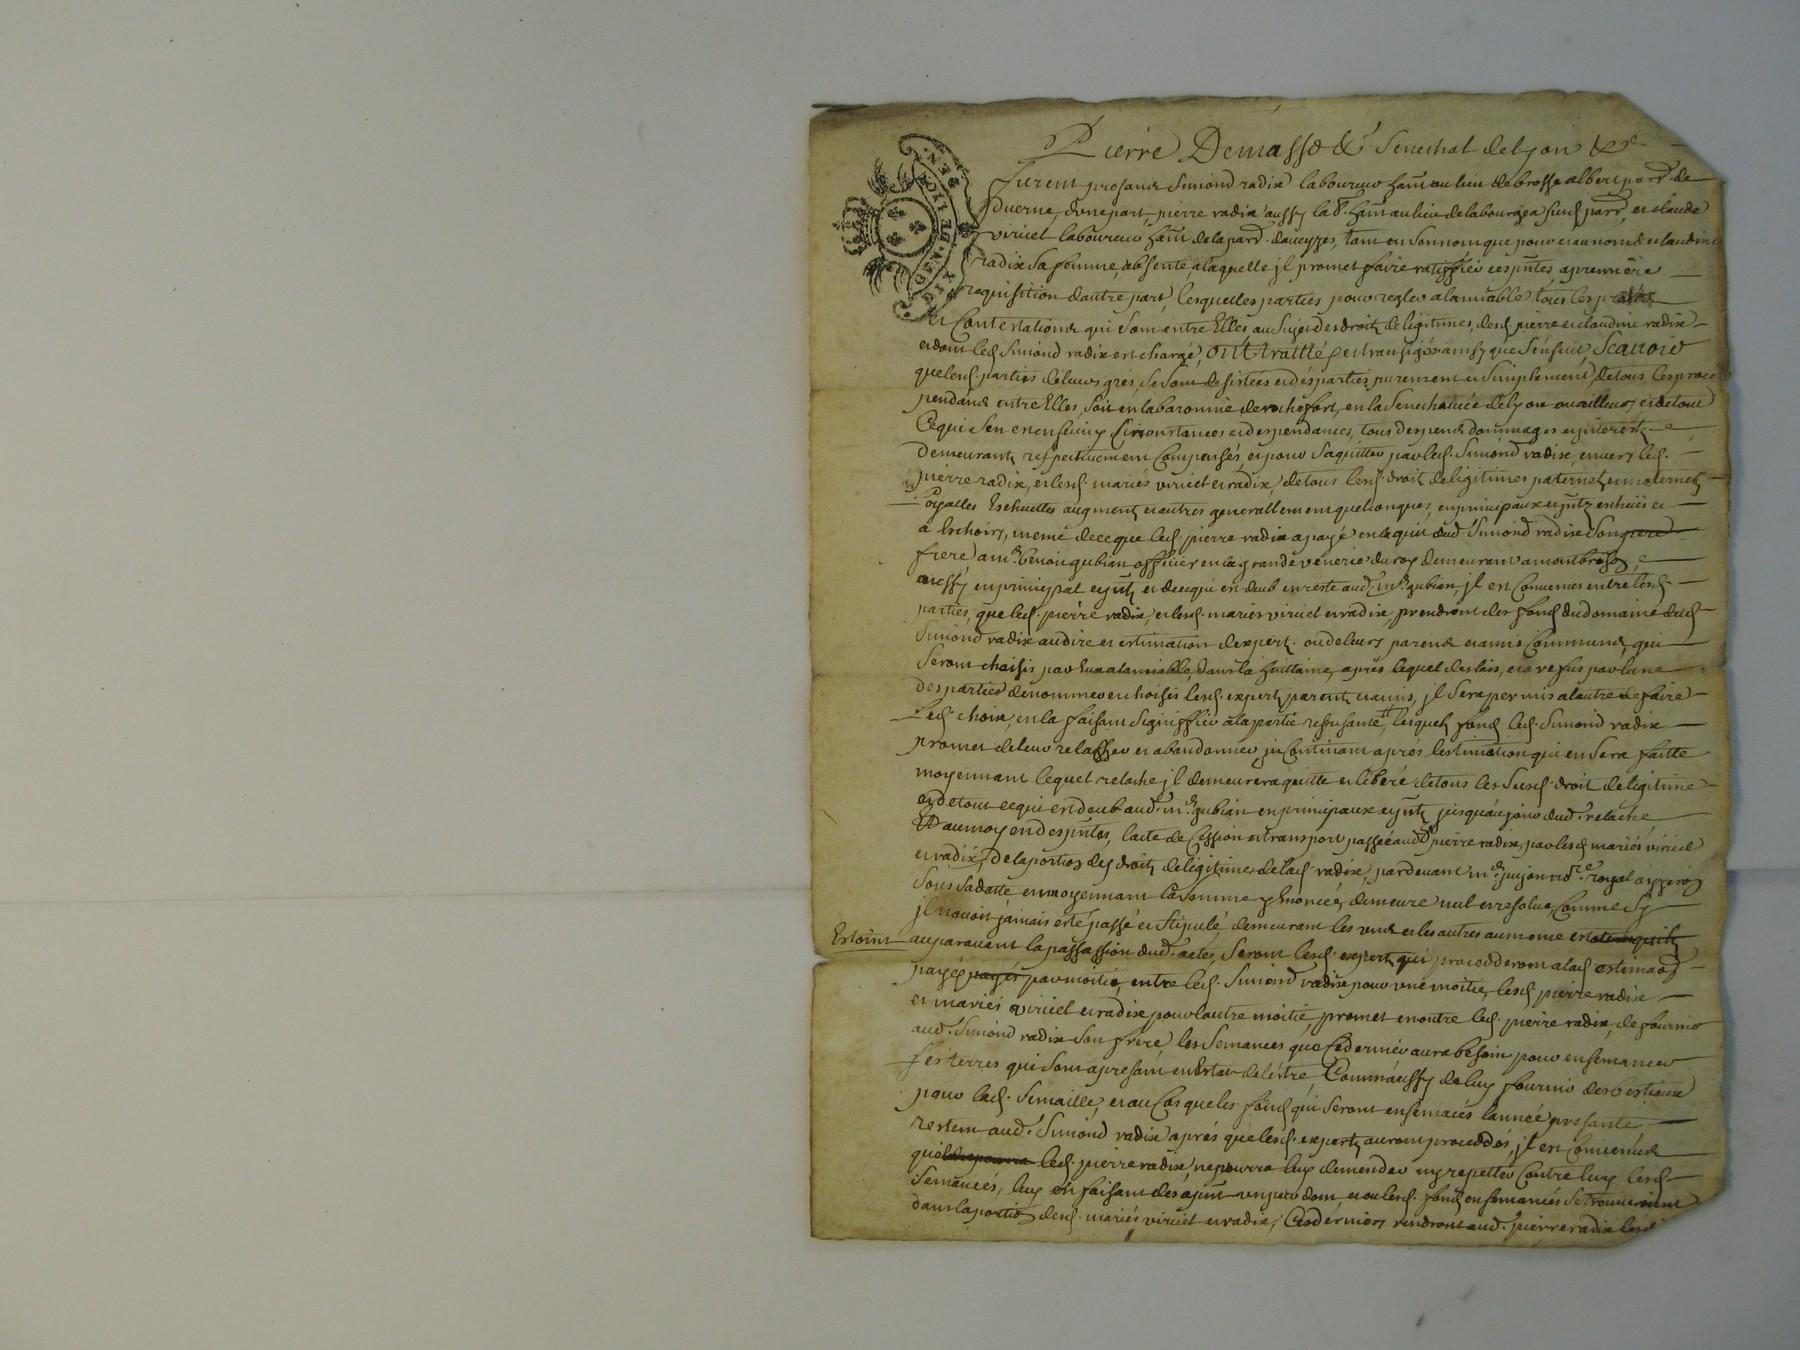 Pierre Demasso &c Senechal de Lyon &c
furent presans Simond radix laboureur hant au lieu de brosse albert parr. de
Duerne, d'une part, pierre radix aussy lab. hant au lieu de labourgea susd. parr. et claude
viricel laboureur hant de la parr. daveyzes, tant en son nom que pour et au nom de claudine
radix sa femme, absente a laquelle jl promet faire ratiffier ces pntes a premiere
requisition d'autre part, lesquelles parties pour regler a lamiable tous les proces
et Contestations qui sont entre Elles au Sujet des droits de legitimes, desd. pierre et claudine radix
et dont led. Simond radix est chargé, ont traitté et transigé ainsy que s'ensuit, Scavoir
que lesd. parties de leurs grés, se sont desistées et desparties purement et simplement, de tous les proces
pendans entre Elles, soit en la baronnie de rochefort, en la Senechaucée de Lyon ou ailleurs et de tout
Ce qui sen est ensuivy Circonstances et despendances, tous despens dommages et jnterests
Demeurants respectivement Compensés, et pour s'aquitter par led. Simond radix, envers led.
pierre radix, et lesd. mariés viricel et radix, de tous lesd. droits de legitimes paternels et maternels
Coyalles Escheuttes augments et autres generallement quelconques, en principaux et jnts escheus et
a Eschoirs, meme de ce que led. pierre radix a payé en lequit dud. Simond radix son
frere, a mr. benoit gubian officier en la grande venerie du roy demeurant a montbrison,
aussy en principal et jnts et de ce qui est deub en reste aud. mr. gubian, jl est Convenus entre lesd.
parties, que led. pierre radix, et lesd. mariés viricel et radix, prendront des fonds du domaine dud.
Simond radix au dire et estimation d'experts ou de leurs parens et amis Communs, qui
seront choisis par Eux a lamiable, dans la huittaine, apres lequel deslais, et a refus par lune
des parties de nommer et choisir lesd. experts, parents et amis, jl sera permis a lautre de faire
led. choix, en la faisant signiffier a la partie reffusante, lesquels fonds led. Simond radix
promet de leur relasser et abandonner, jncontinant aprés lestimation qui en sera faitte
moyennant lequel relache jl demeurera quitte et liberé de tous les susd. droits de legitime
et de tout ce qui est deub aud. mr. gubian en principaux et jnts jusqu'au jour dud. relache
Et au moyen des pntes, lacte de Cession et transport passée aud. pierre radix, par lesd. mariés viricel
et radix, de la portion des droits de legitimes de lad. radix, pardevant me. jujon nore. royal
sous sa datte, et moyennant la somme y enoncée, demeure nul et resolue, Comme sy
jl n'avoit jamais esté passé et stipulé, demeurant les uns et les autres au meme
Estoint auparavant la passassion dud. actes, seront lesd. experts qui procedderont a lad. estimaon
payés par moitié, entre led. Simond radix pour une moitié, lesd. pierre radix
et mariés viricel et radix pour lautre moitié, promet en outre led. pierre radix, de fournir
aud. Simond radix son frere, les semances que ce dernier aura besoin pour ensemancer
ses terres qui sont a presant en Estat de l'estre, Comm'aussy de luy fournir des bestiaux
pour lad. semaille, et au Cas que les fonds qui seront ensemancés lannée presante
restent aud. Simond radix aprés que lesd. experts auront procéddés, jl est Convenus
que led. pierre radix ne pourra luy demender ny repetter Contre luy lesd.
semances, luy en faisant
dans la portion desd. mariés viricel et radix, Ces derniers rendront aud. pierre radix